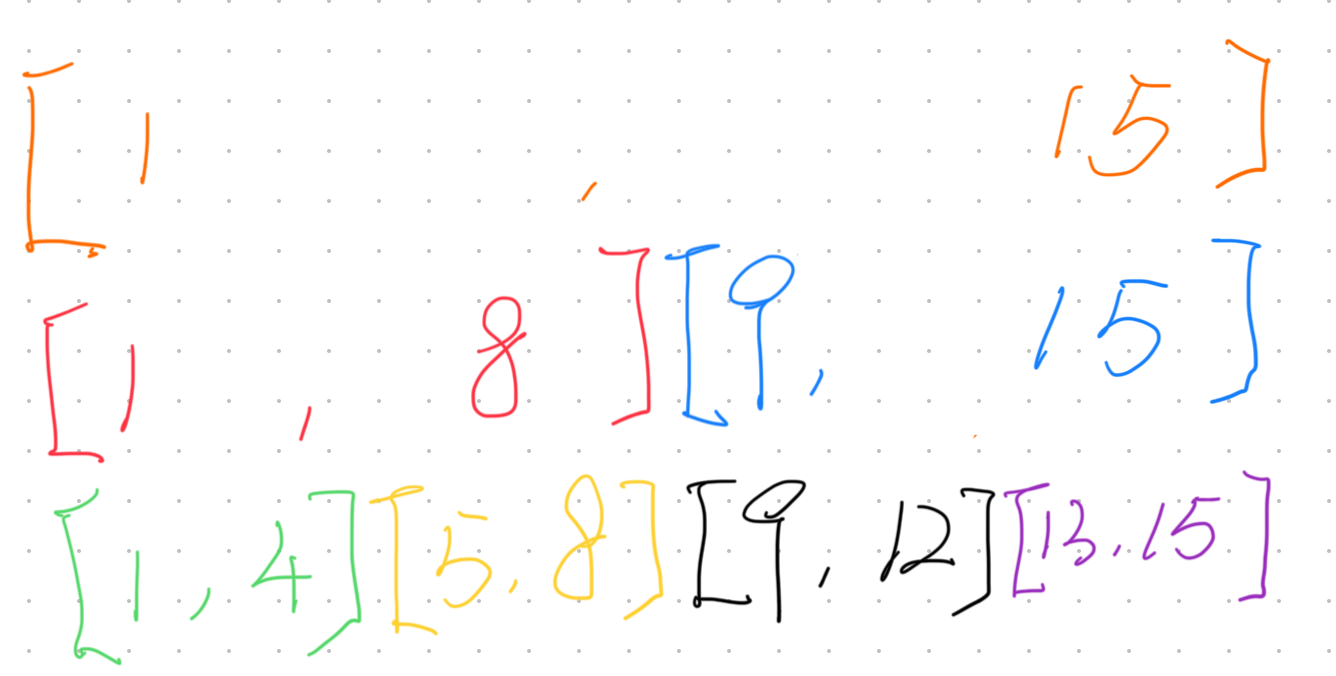 [1 , 15]
[1 , 8][9, 15]
[1, 4][5, 8][9, 12][13. 15]